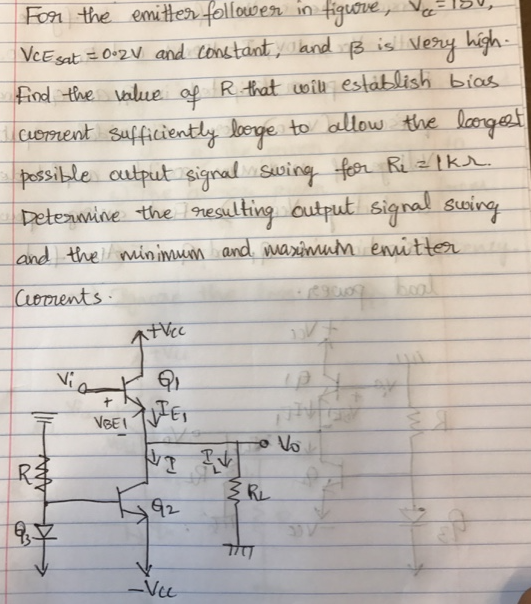 For the emitter follower in figure, Vcc = 15V,
VCEsat = 0.2V and constant, and β is very high.
Find the value of R that will establish bias
current sufficiently large to allow the largest
possible output signal swing for RL = 1kΩ.
Determine the resulting output signal swing
and the minimum and maximum emitter
currents.
+Vcc
Vi
Q1
+
VBE1
-
IE1
Vo
I
IL
R
RL
Q2
Q3
-Vcc